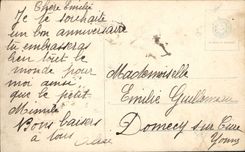 Chère Emilie
Je te souhaite
un bon anniversaire
tu embrasseras
bien tout le
monde pour
moi ainsi
que le petit
Mimile
Bons baisers
à tous
Mademoiselle
Emilie
Domecy sur Cure
Yonne